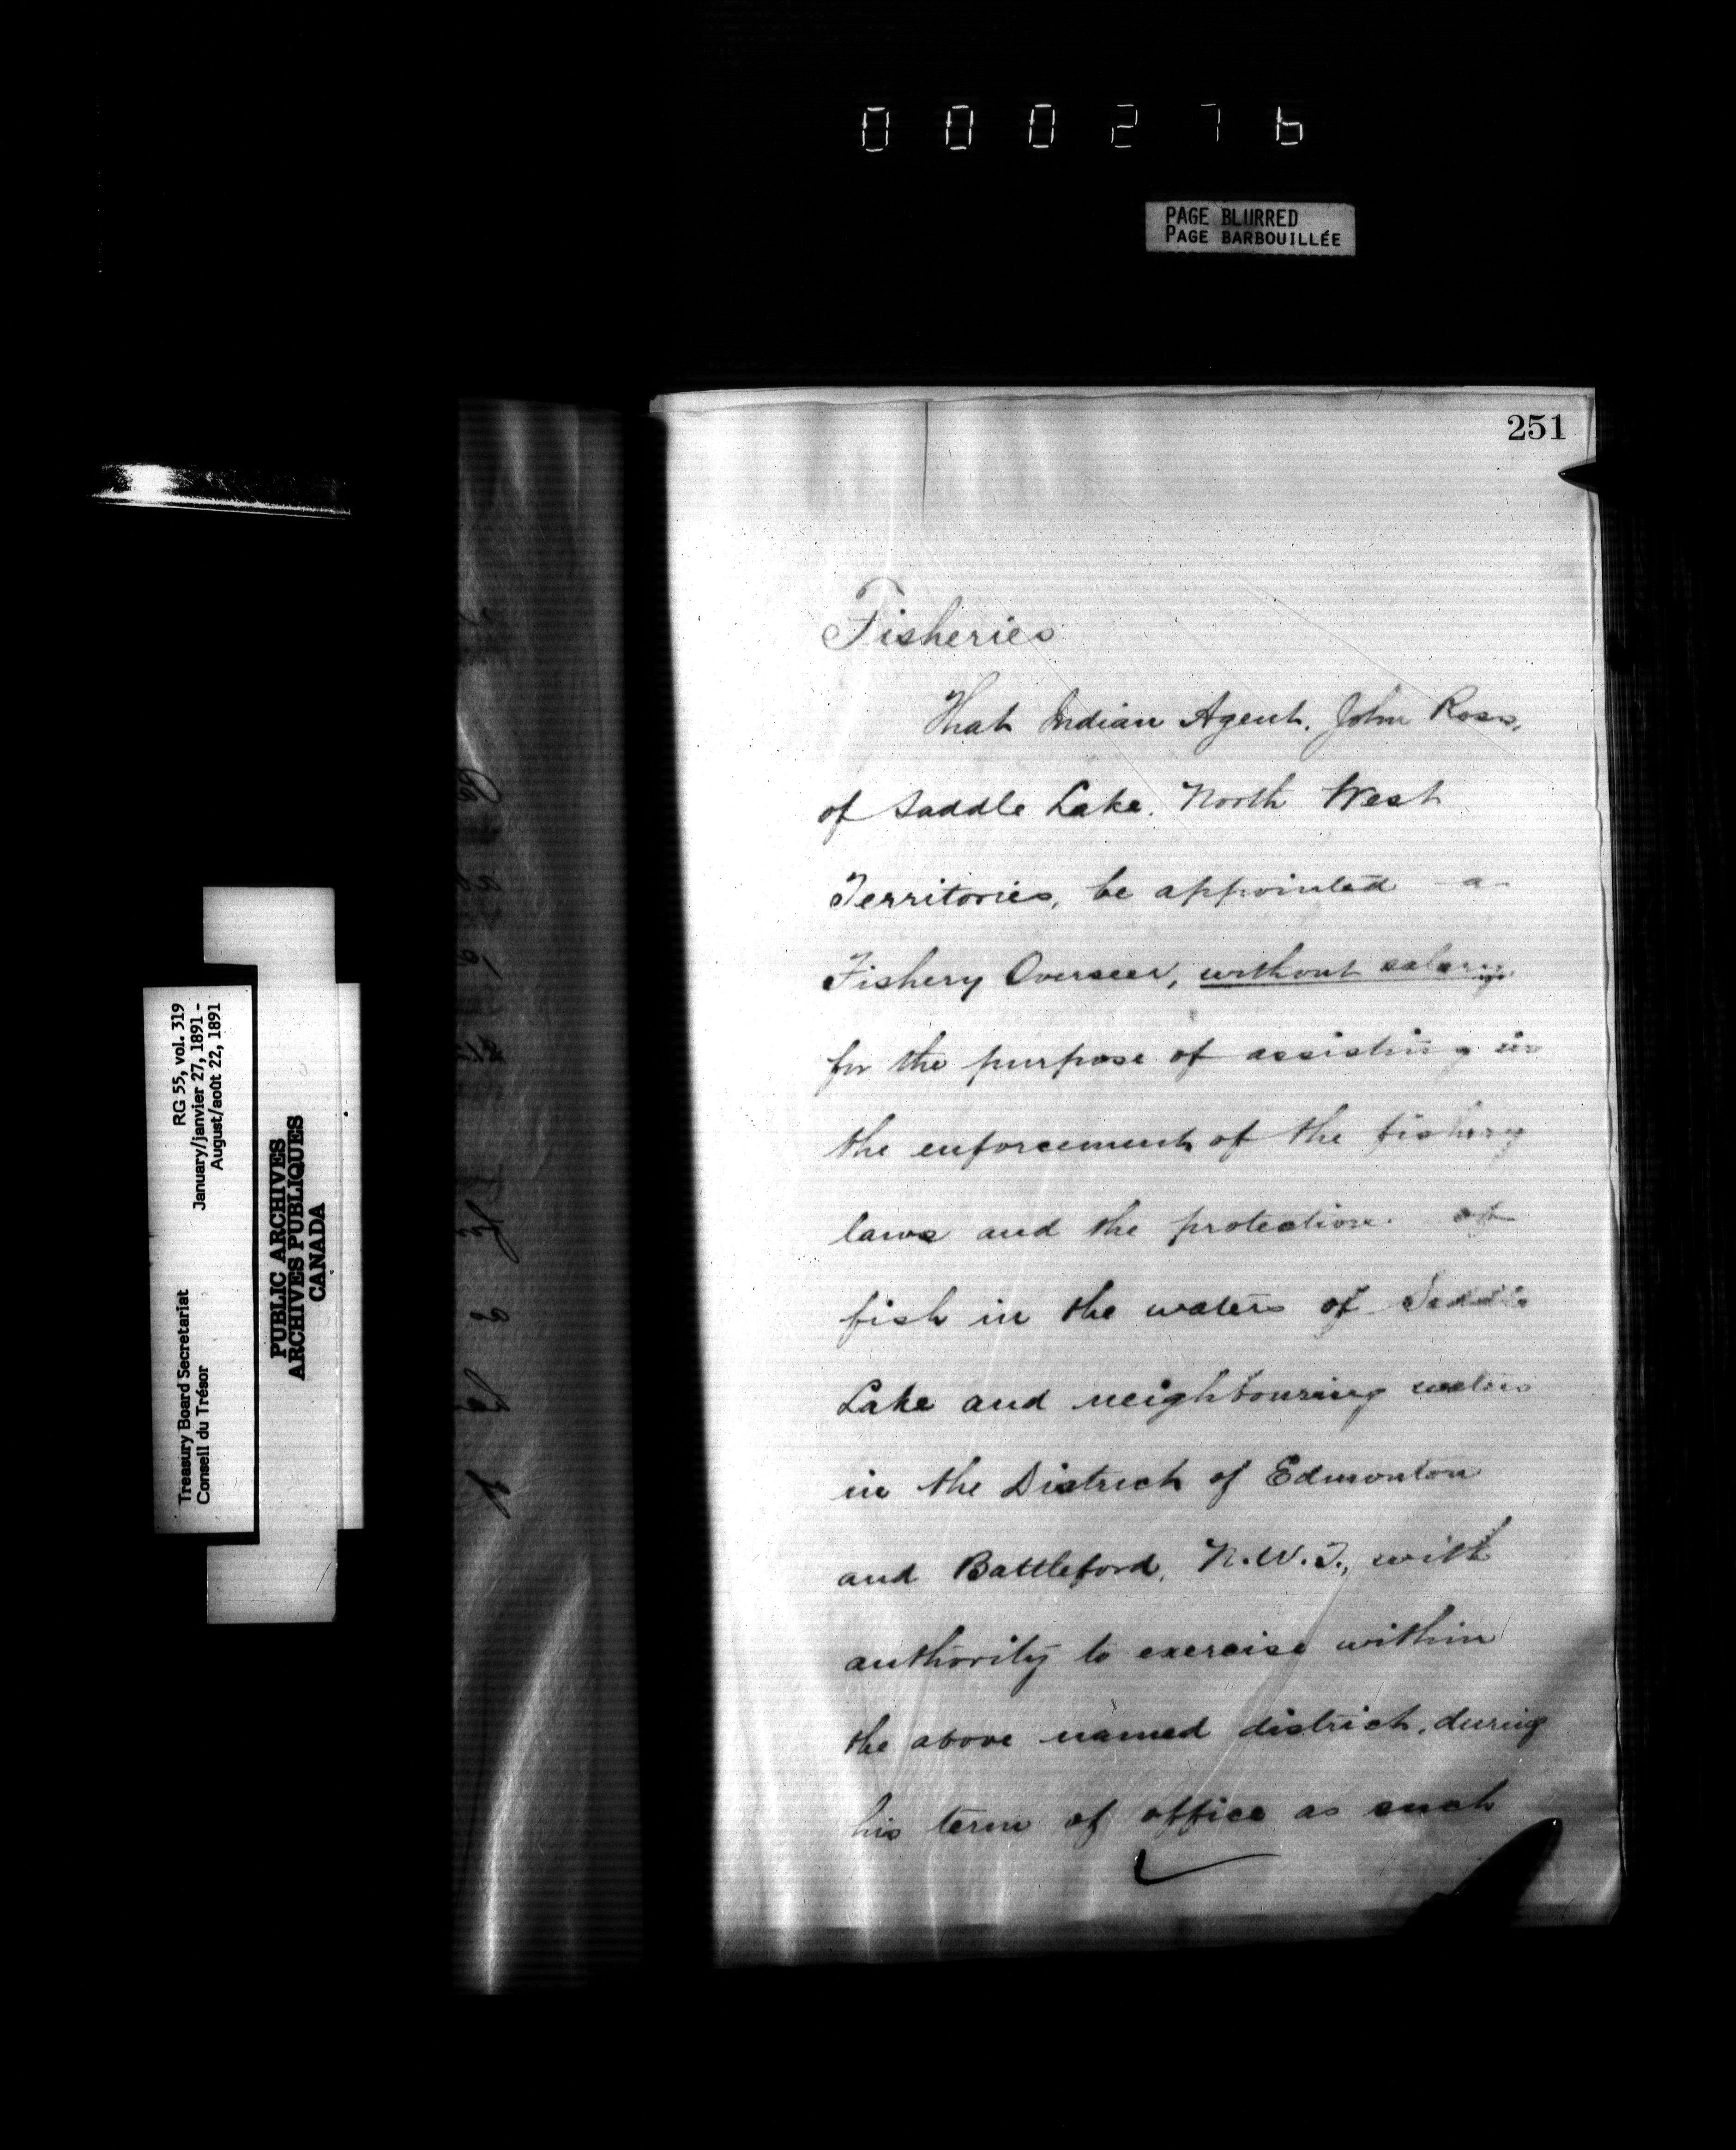 000276
PAGE BLURRED
PAGE BARBOUILLÉE
251
Fisheries
That Indian Agent, John Ross,
of Saddle Lake, North West
Territories, be appointed a
Fishery Overseer, without salary,
for the purpose of assisting in
the enforcement of the fishery
laws and the protection of
fish in the waters of Saddle
Lake and neighbouring waters
in the District of Edmonton
and Battleford, N.W.T., with
authority to exercise within
the above named district, during
his term of office as such
RG 55, vol. 319
January/janvier 27, 1891 -
August/août 22, 1891
Treasury Board Secretariat
Conseil du Trésor
PUBLIC ARCHIVES
ARCHIVES PUBLIQUES
CANADA